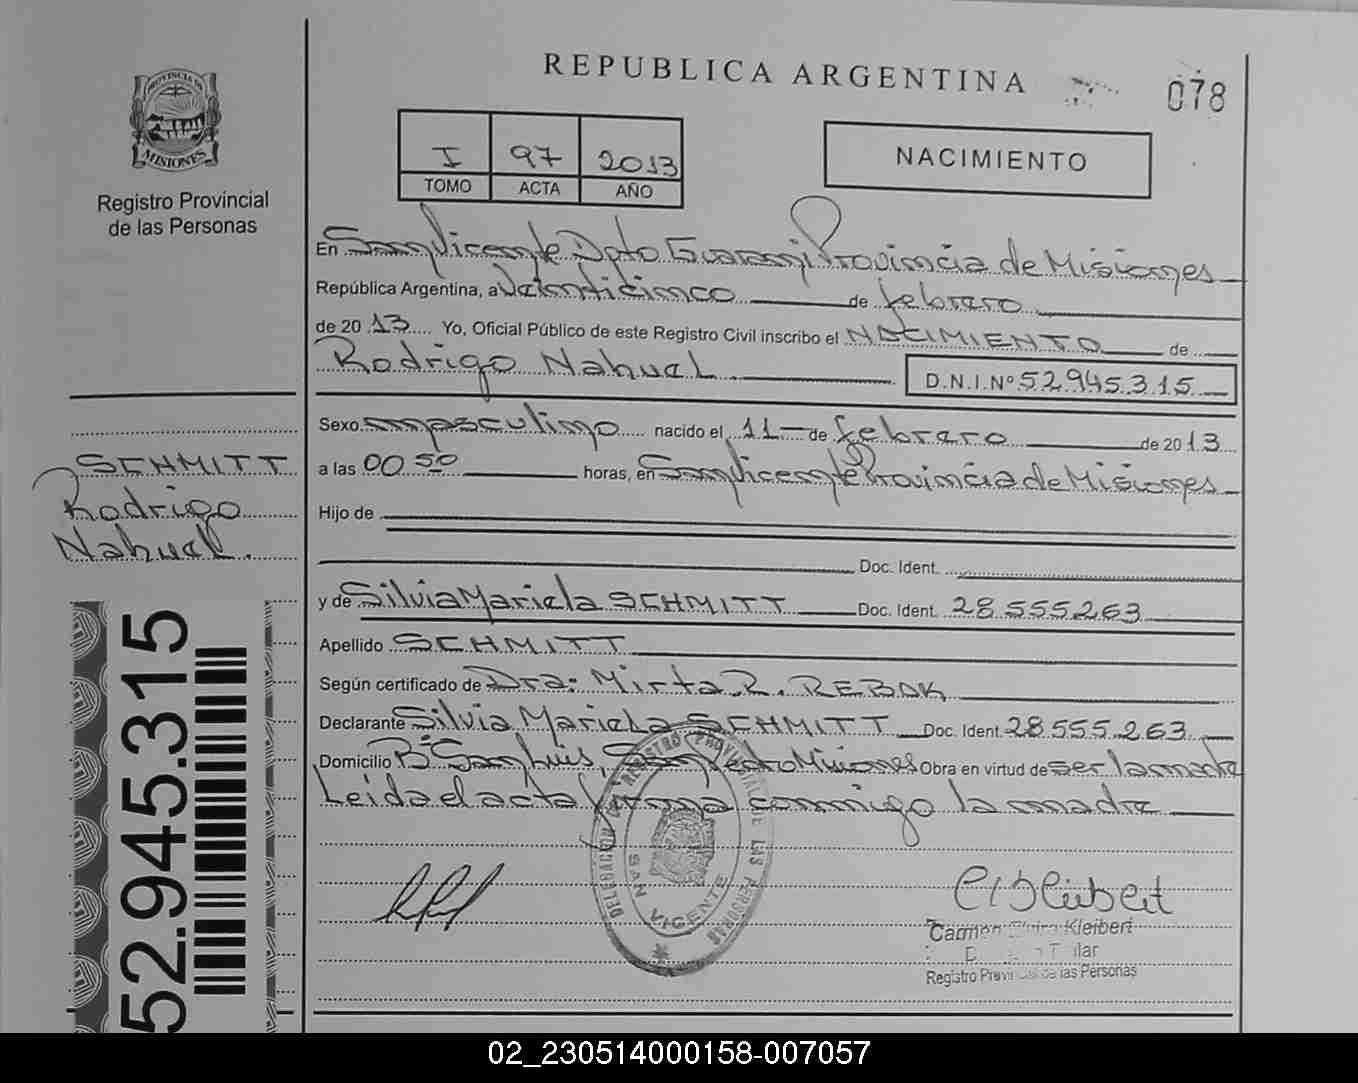 REPUBLICA ARGENTINA
078
PROVINCIA DE
MISIONES
Registro Provincial
de las Personas
I 97 2013
TOMO ACTA AÑO
NACIMIENTO
En San Vicente Dpto Guarani Provincia de Misiones
República Argentina, a Veinticinco de febrero
de 20 13 Yo, Oficial Público de este Registro Civil inscribo el NACIMIENTO de
Rodrigo Nahuel D.N.I.Nº 52.945.315
Sexo masculino nacido el 11 de febrero de 2013
a las 00 50 horas, en San Vicente Provincia de Misiones
Hijo de
Doc. Ident.
y de Silvia Mariela SCHMITT Doc. Ident. 28.555.263
Apellido SCHMITT
Según certificado de Dra: Mirta R. REBAK
Declarante Silvia Mariela SCHMITT Doc. Ident. 28.555.263
Domicilio Bº San Luis, San Pedro Misiones Obra en virtud de ser la madre
Leida el acta firma conmigo la madre
SCHMITT
Rodrigo
Nahuel.
52.945.315
DELEGACION DEL REGISTRO PROVINCIAL DE LAS PERSONAS
SAN VICENTE
Carmen Kleibert
Registro Provincial de las Personas
02_230514000158-007057